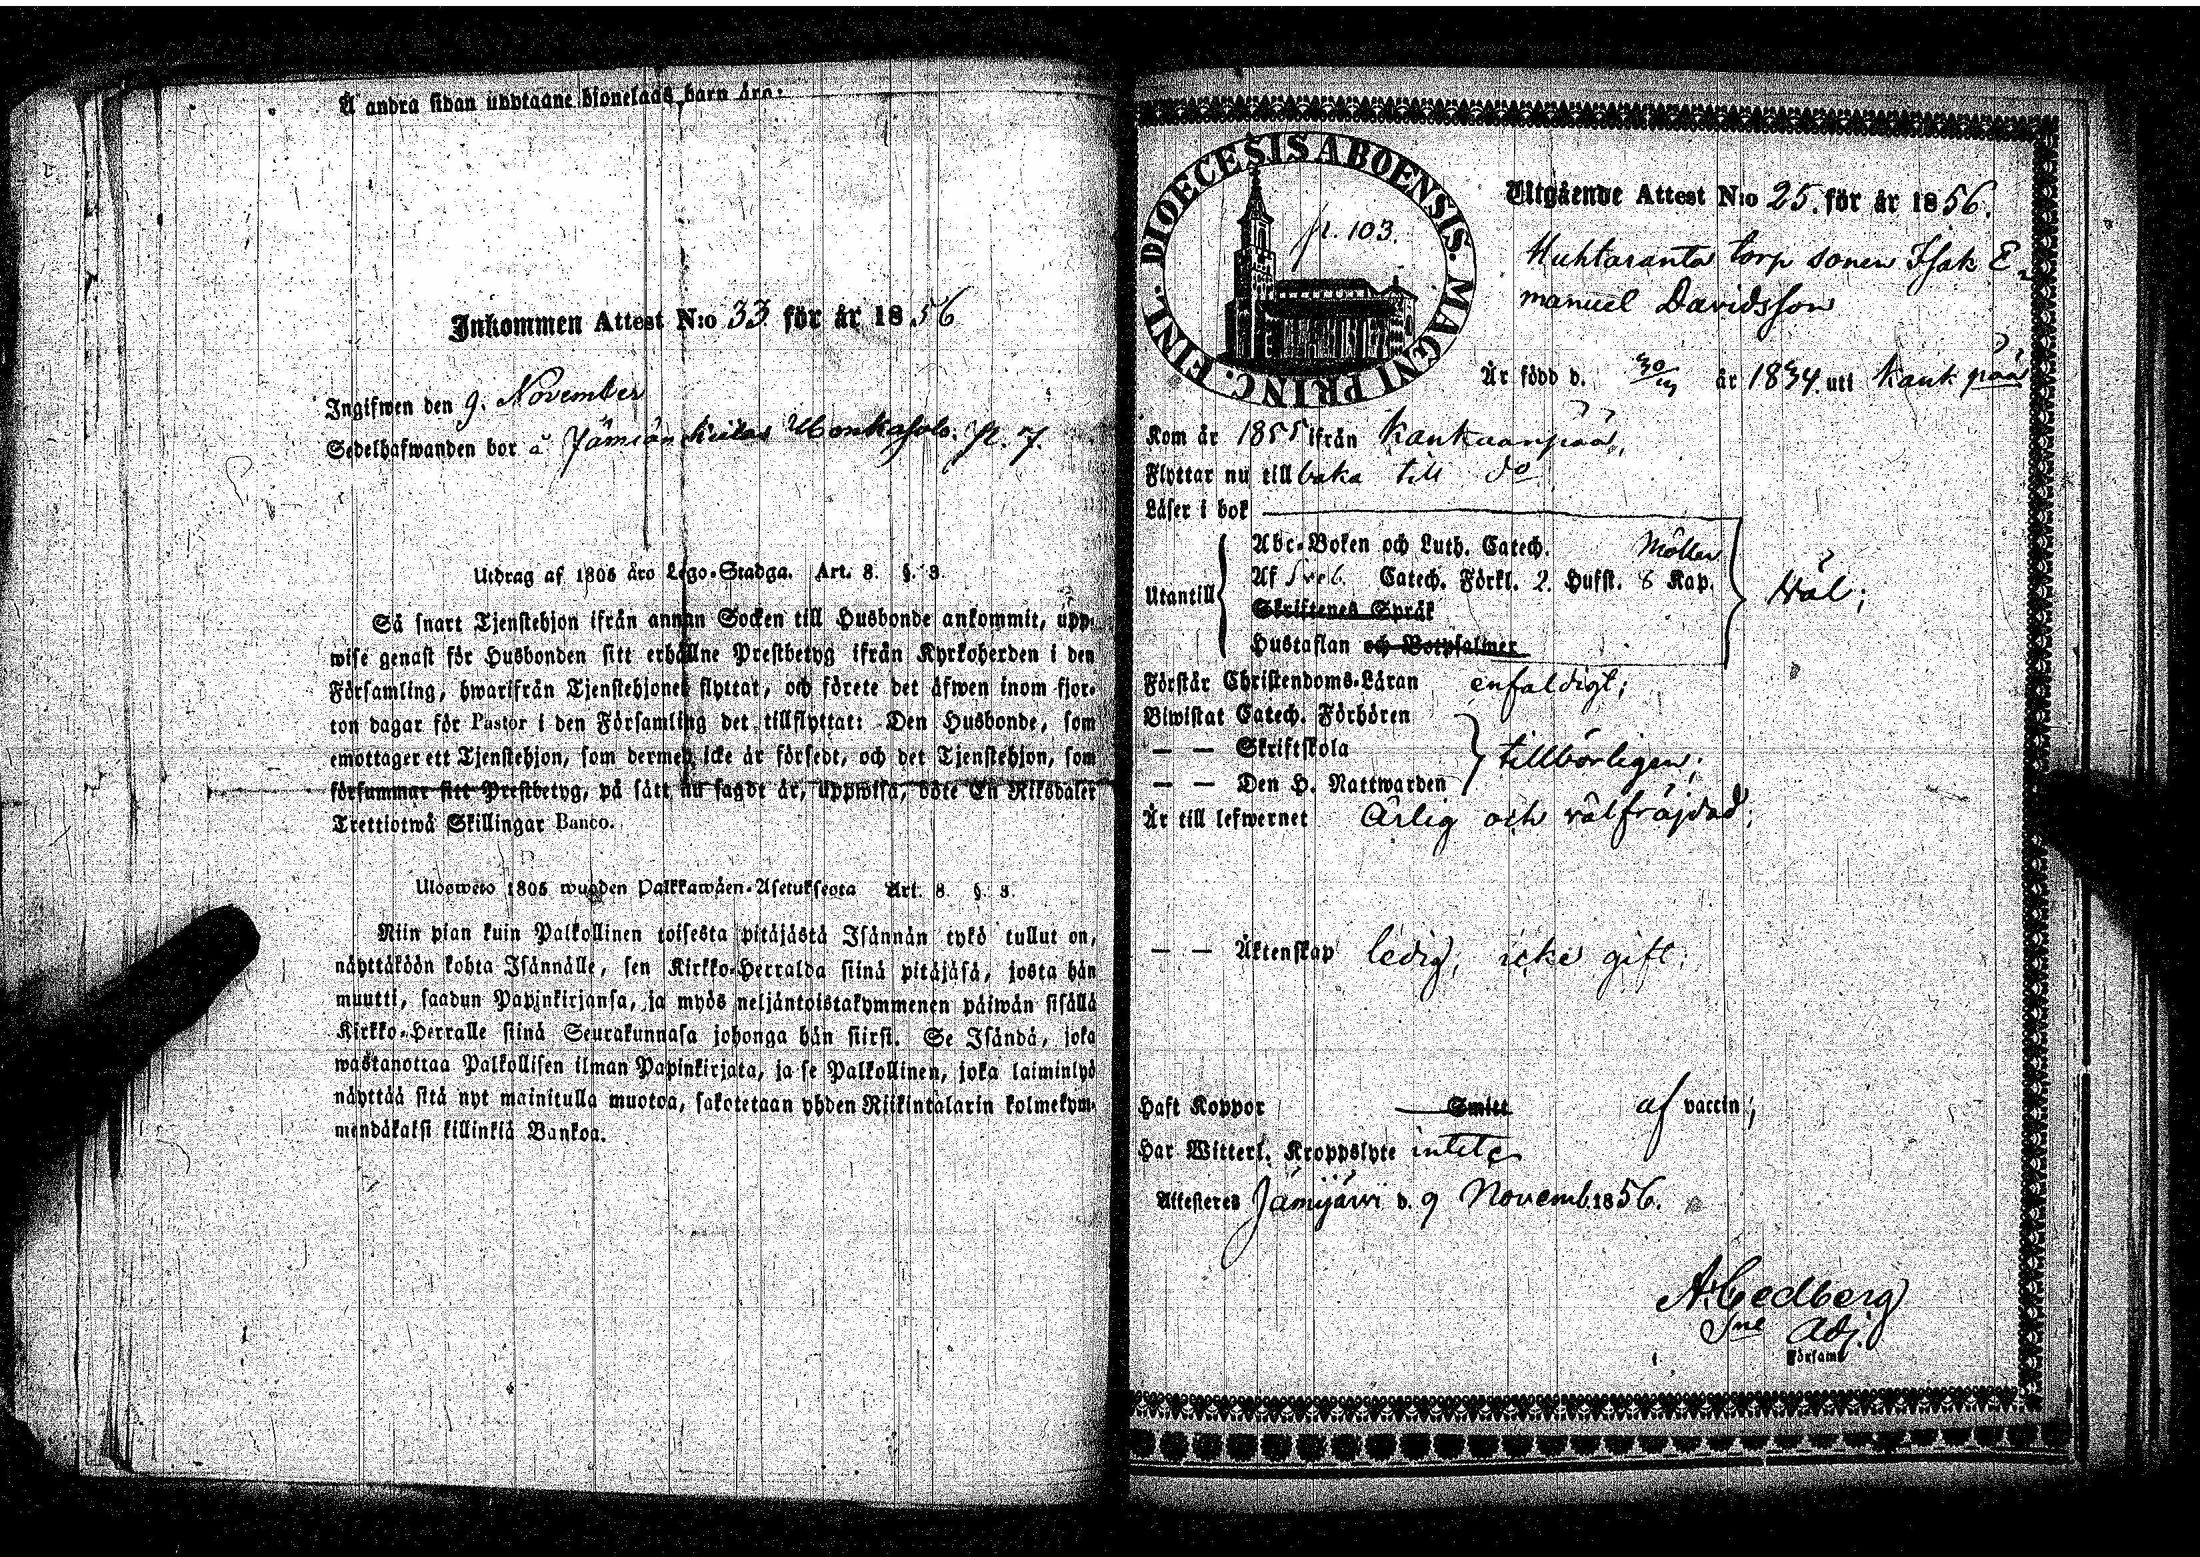 Å andra sidan upptagne hjonelags barn äro:
Inkommen Attest N:o 33 för år 1856
Ingifwen den 9. November
Sedelhafwanden bor å Jämiän kulas Honkasalo. p. 7.
Utdrag af 1805 års Lego-Stadga. Art. 8. §. 3.
Så snart Tjenstehjon ifrån annan Socken till Husbonde ankommit, upp-
wise genast för Husbonden sitt erhållne Prestbetyg ifrån Kyrkoherden i den
Församling, hwarifrån Tjenstehjonet flyttat, och förete det äfwen inom fjor-
ton dagar för Pastor i den Församling det tillflyttat: Den Husbonde, som
emottager ett Tjenstehjon, som dermed icke är försedt, och det Tjenstehjon, som
försummar sitt Prestbetyg, på sätt nu sagdt är, uppwisa, böte En Riksdaler
Trettiotwå Skillingar Banco.
Ulosweto 1805 wuoden Palkkawäen-Asetuksesta Art. 8. §. 3.
Niin pian kuin Palkollinen toisesta pitäjästä Isännän tykö tullut on,
näyttäköön kohta Isännälle, sen Kirkko-Herralda siinä pitäjäsä, josta hän
muutti, saadun Papinkirjansa, ja myös neljäntoistakymmenen päiwän sisällä
Kirkko-Herralle siinä Seurakunnasa johonga hän siirsi. Se Isändä, joka
wastanottaa Palkollisen ilman Papinkirjata, ja se Palkollinen, joka laiminlyö
näyttää sitä nyt mainitulla muotoa, sakotetaan yhden Riikintalarin kolmekym-
mendäkaksi killinkiä Bankoa.
DIOECESIS ABOENSIS. MAGNI PRINC. FINL.
p. 103.
Utgående Attest N:o 25. för år 1856.
Huhtaranta torp sonen Isak E-
manuel Davidsson
Är född d. år 1834 uti Kankpää
Kom år 1855 ifrån Kankaanpää,
Flyttar nu tillbaka till do
Läser i bok
Utantill
Abc-Boken och Luth. Catech. Möller
Af Sveb. Catech. Förkl. 2. Hufst. 8 Kap.
Skriftenes Språk
Hustaflan och Botpsalmer
Häl;
Förstår Christendoms-Läran enfaldigt;
Biwistat Catech. Förhören
— — Skriftskola
— — Den H. Nattwarden
tillbörligen;
Är till lefwernet Ärlig och välfräjdad;
— — Äktenskap ledig, icke gift;
Haft Koppor Smitt af vaccin;
Har Witterl. Kroppslyte intet
Attesteres Jämijärvi d. 9 Novemb. 1856.
A. Cedberg
Sne Adj.
Församl